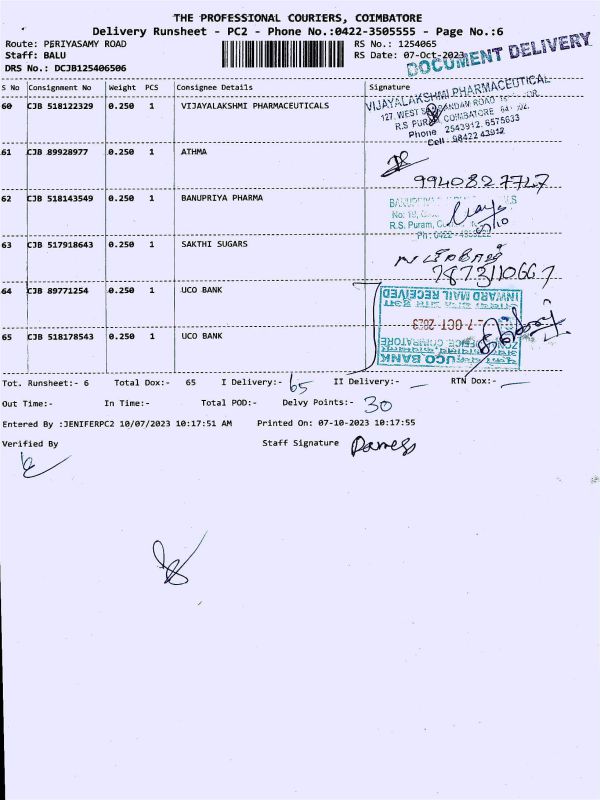 THE PROFESSIONAL COURIERS, COIMBATORE
Delivery Runsheet - PC2 - Phone No.:0422-3505555 - Page No.:6
Route: PERIYASAMY ROAD RS No.: 1254065
Staff: BALU RS Date: 07-Oct-2023
DRS No.: DCJB125406506
DOCUMENT DELIVERY
S No Consignment No Weight PCS Consignee Details Signature
60 CJB 518122329 0.250 1 VIJAYALAKSHMI PHARMACEUTICALS
VIJAYALAKSHMI PHARMACEUTICAL
127, WEST
R.S PURAM COIMBATORE
Phone 2543912, 6575633
Cell: 98422 43912
61 CJB 89928977 0.250 1 ATHMA
9940827747
62 CJB 518143549 0.250 1 BANUPRIYA PHARMA
R.S. Puram,
63 CJB 517918643 0.250 1 SAKTHI SUGARS
7873110667
64 CJB 89771254 0.250 1 UCO BANK
INWARD MAIL RECEIVED
7 OCT 2023
65 CJB 518178543 0.250 1 UCO BANK
ZONAL OFFICE, COIMBATORE
UCO BANK
Tot. Runsheet:- 6 Total Dox:- 65 I Delivery:- 65 II Delivery:- — RTN Dox:- —
Out Time:- In Time:- Total POD:- Delvy Points:- 30
Entered By :JENIFERPC2 10/07/2023 10:17:51 AM Printed On: 07-10-2023 10:17:55
Verified By Staff Signature